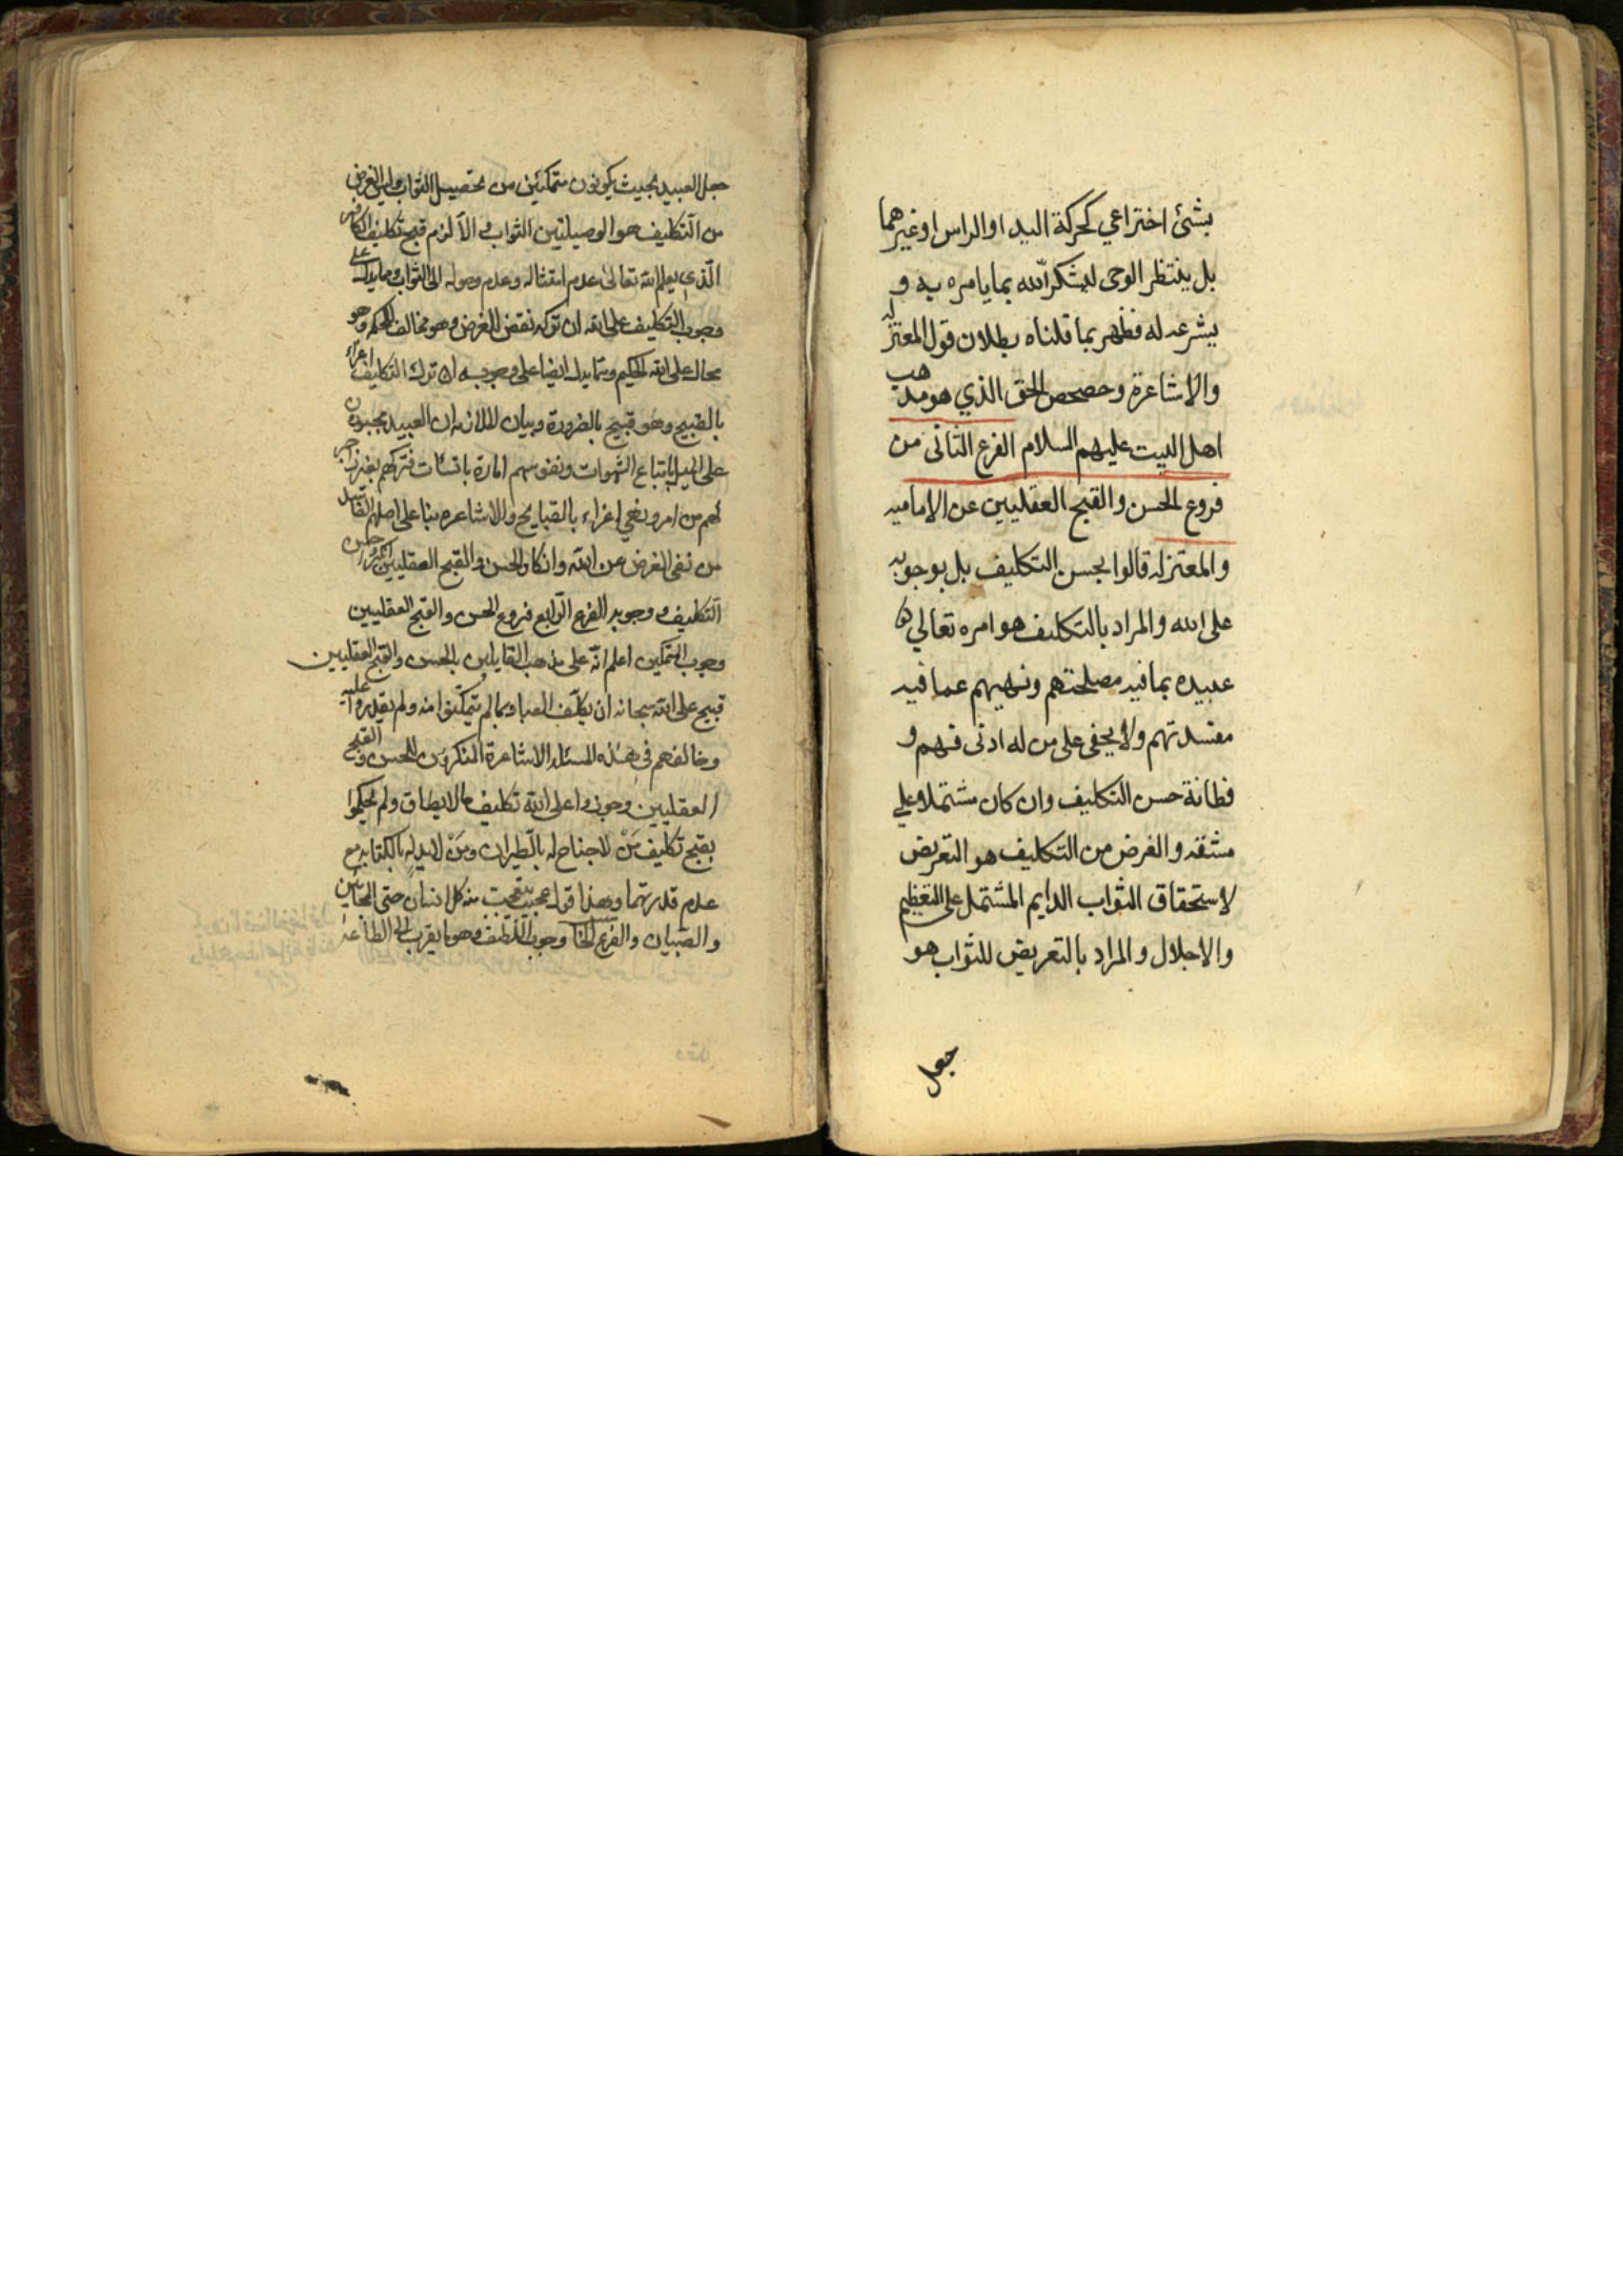 بشئ اختراعي كحركة اليد او الراس او غيرهما
بل ينتظر الوحى ليشكر الله بما يامره به و
يشرعه له فظهر بما قلناه بطلان قول المعتزله
والاشاعرة وحصحص الحق الذي هو مذهب
اهل البيت عليهم السلام الفرع الثانى من
فروع الحسن والقبح العقليين عن الاماميه
والمعتزله قالوا بحسن التكليف بل بوجوبه
على الله والمراد بالتكليف هو امره تعالي
عبيده بما فيه مصلحتهم ونهيهم عما فيه
مفسدتهم ولا يخفى على من له ادنى فهم و
فطانة حسن التكليف وان كان مشتملا علي
مشقه والغرض من التكليف هو التعريض
لاستحقاق الثواب الدايم المشتمل على التعظيم
والاجلال والمراد بالتعريض للثواب هو
جعل
جعل العبيد بحيث يكونون متمكنين من تحصيل الثواب وليس الغرض
من التكليف هو الوصيلتين الثواب و الا لزم قبح تكليف الكافر
الّذي يعلم الله تعالىٰ عدم امتثاله وعدم وصوله الى الثواب ومما يدل على
وجوب التكليف على الله ان تركه نقض للغرض وهو مخالف للحكمه وهو
محال على الله الحكيم ومما يدل ايضا على وجوبه ان ترك التكليف اغراء
بالقبيح وهو قبيح بالضرورة وبيان الملازمه ان العبيد مجبورن
على الميل باتباع الشهوات ونفوسهم امارة بالسئات فتركهم بغير زاجر
لهم من امر ونهي اغراء بالقبايح والاشاعره بنا على اصلهم الفاسد
من نفى الغرض عن الله وانكار الحسن والقبح العقليين انكروا حسن
التكليف ووجوبه الفرع الرّابع فروع الحسن والقبح العقليين
وجوب التمكين اعلم انّه على مذهب القايلين بالحسن والقبح العقليين
قبيح على الله سبحانه ان يكلّف العباد بما لم يتمكّنوا منه ولم يقدروا عليه
وخالفهم فى هذه المسئله الاشاعرة المنكرون للحسن والقبح
العقليين وجوزوا على الله تكليف مالا يطاق ولم يحكموا
بقبح تكليف مَنْ لا جناح له بالطيران ومَنْ لا يد له بالكتابه مع
عدم قدرتهما وهذا قول عجيب يتعجب منه كل انسان حتى المجانين
والصّبيان والفرع الخامس وجوب اللّطيف وهو ما يقرب الى الطاعة